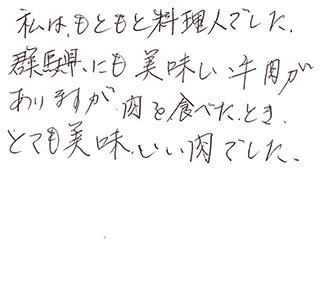 私は、もともと料理人でした。
群馬県、にも美味しい牛肉が
ありますが、肉を食べた、とき、
とても美味しい肉でした、